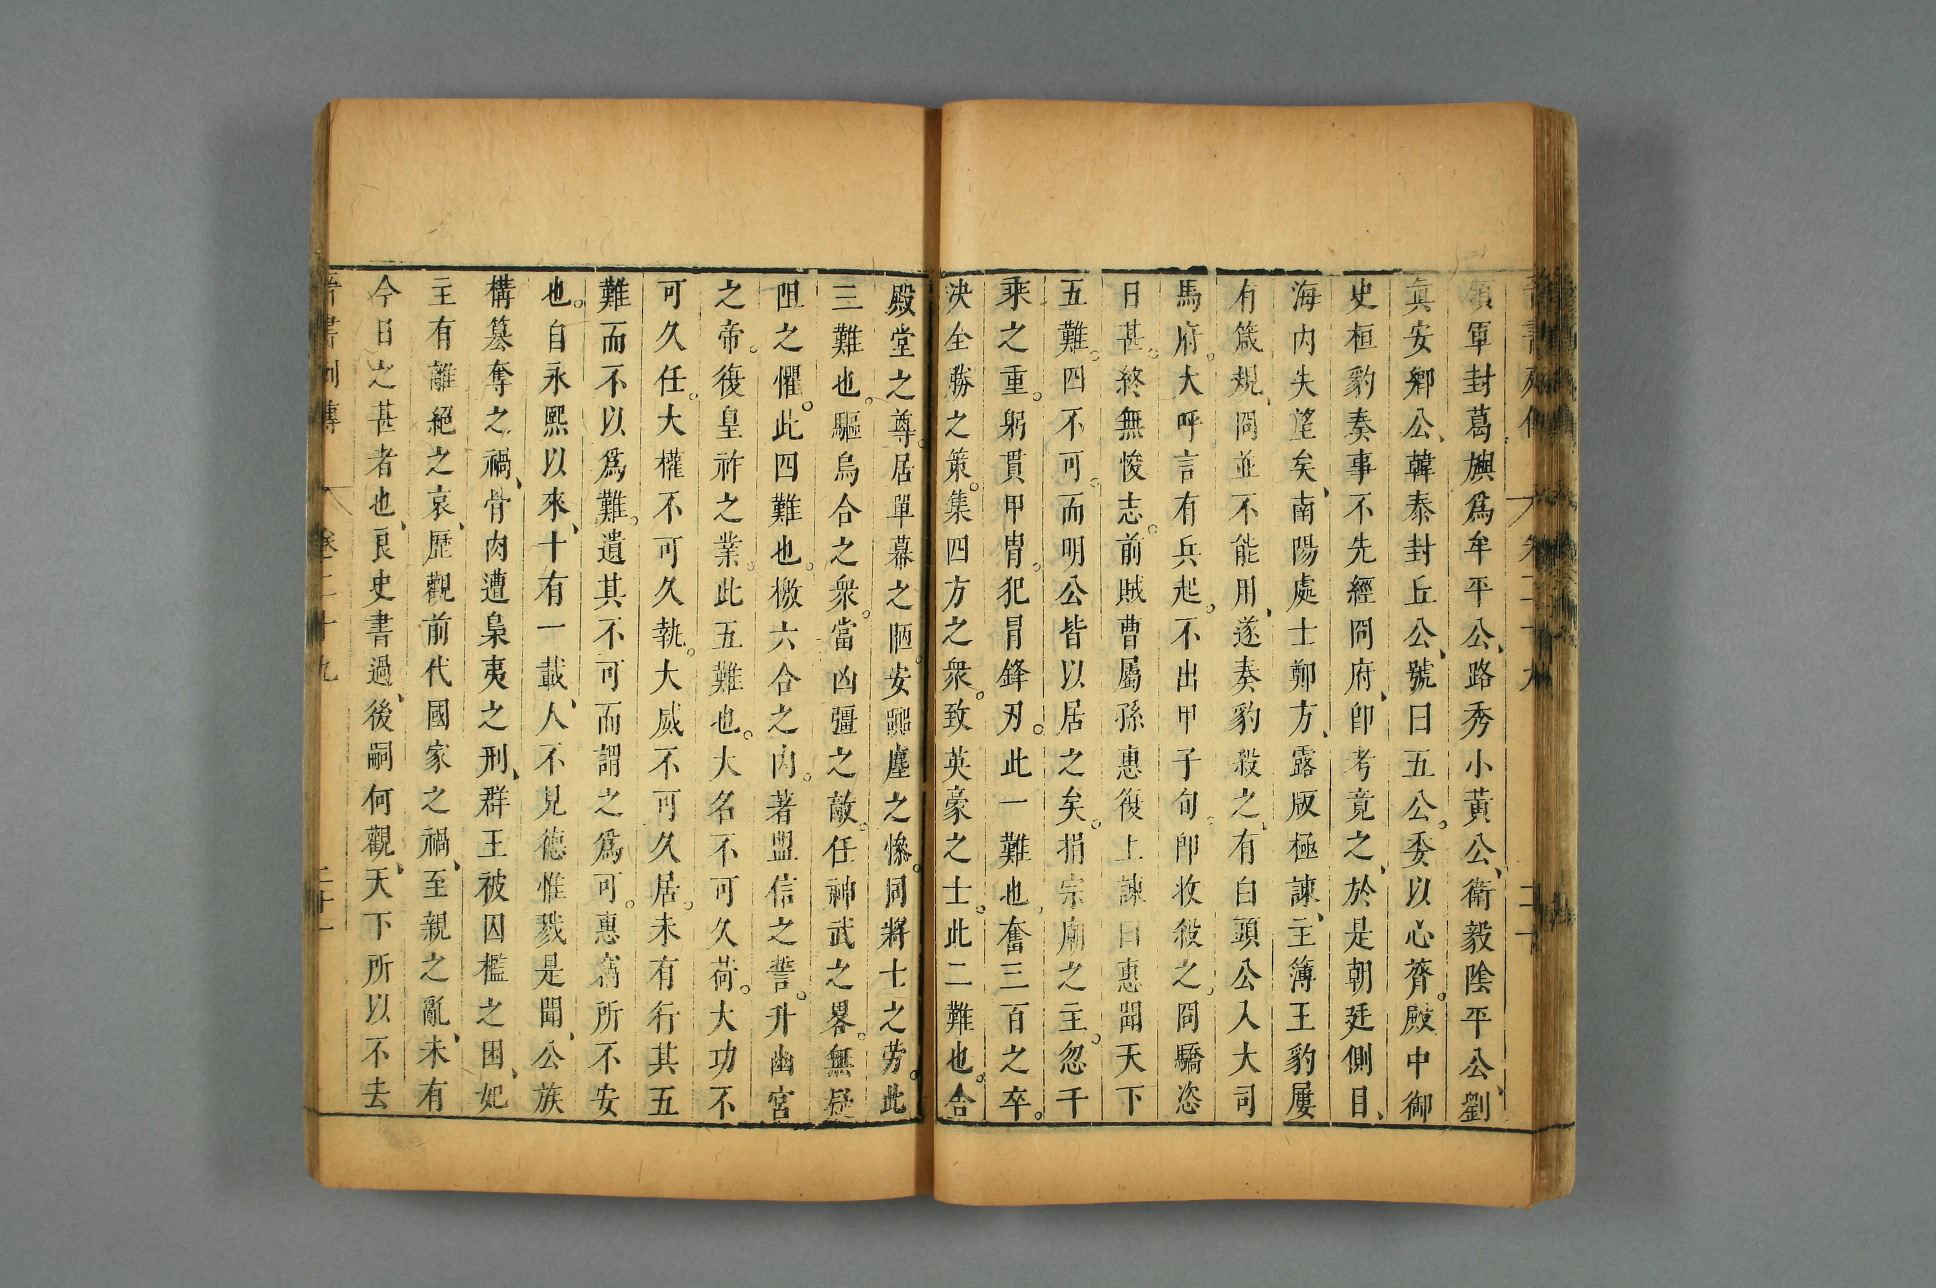 領軍封葛旟爲牟平公、路秀小黃公、衛毅陰平公、劉
眞安鄉公、韓泰封丘公、號曰五公。委以心膂。殿中御
史桓豹奏事不先經冏府、卽考竟之、於是朝廷側目、
海内失望矣、南陽處士鄭方、露版極諫、主簿王豹屢
有箴規、冏並不能用、遂奏豹殺之、有白頭公入大司
馬府。大呼言有兵起。不出甲子旬。卽收殺之。冏驕恣
日甚。終無悛志。前賊曹屬孫惠復上諫曰惠聞天下
五難。四不可。而明公皆以居之矣。捐宗廟之主。忽千
乘之重。躬貫甲冑。犯冒鋒刃。此一難也。奮三百之卒。
決全勝之策。集四方之衆。致英豪之士。此二難也。舍
殿堂之尊。居單幕之陋。安嚻塵之慘。同將士之勞。此
三難也。驅烏合之衆。當凶彊之敵。任神武之畧。無疑
阻之懼。此四難也。檄六合之内。著盟信之誓。升幽宮
之帝。復皇祚之業。此五難也。大名不可久荷。大功不
可久任。大權不可久執。大威不可久居。未有行其五
難而不以爲難。遺其不可而謂之爲可。惠竊所不安
也。自永熙以來、十有一載、人不見德惟戮是聞、公族
構簒奪之禍、骨肉遭梟夷之刑、群王被囚檻之困、妃
主有離絕之哀、歷觀前代國家之禍、至親之亂、未有
今日之甚者也、良史書過、後嗣何觀、天下所以不去
晉書列傳 卷二十九 二十一